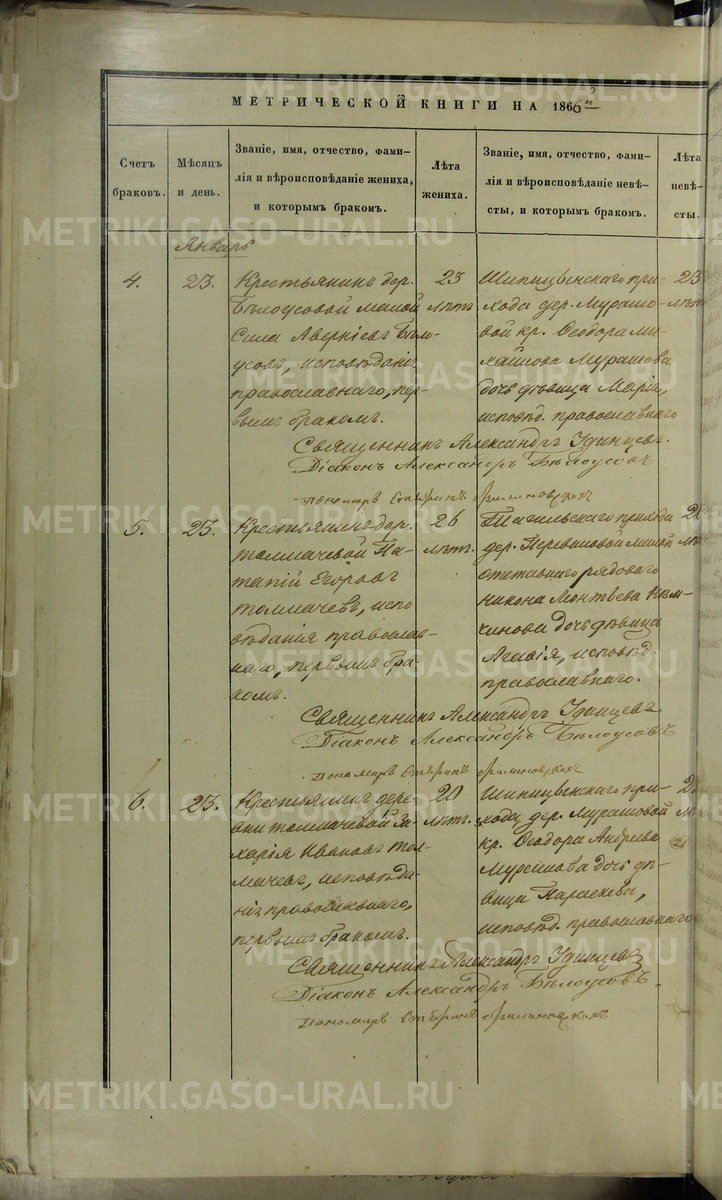 МЕТРИЧЕСКОЙ КНИГИ НА 1866й
Счетъ
браковъ.
Мѣсяцъ
и день.
Званіе, имя, отчество, фами-
лія и вѣроисповѣданіе жениха,
и которымъ бракомъ.
Лѣта
жениха.
Званіе, имя, отчество, фами-
лія и вѣроисповѣданіе невѣ-
сты, и которымъ бракомъ.
Лѣта
невѣ-
сты.
Январь
4.
23.
Крестьянинъ дер.
Бѣлоусовой малой
Сила Аверкіевъ Бѣло-
усовъ, исповѣданія
православнаго, пер-
вымъ бракомъ.
23
лѣтъ
Шипицынскаго при-
хода дер. Мурашо-
вой кр. Ѳеодора Ми-
хайлова Мурашова
дочь дѣвица Марія,
исповѣд. православнаго
23
лѣтъ
Священникъ Александръ Удинцевъ.
Діаконъ Александръ Бѣлоусовъ
Пономарь
5.
23.
Крестьянинъ дер.
Толмачевой Па-
тапій Егоровъ
Толмачевъ, испо
вѣданія православ-
наго, первымъ бра-
комъ.
26
лѣтъ.
Тагильскаго прихода
дер. Переваловой малой
отставнаго рядоваго
Никона
дочь дѣвица
исповѣд.
православнаго.
Священникъ Александръ Удинцевъ
Діаконъ Александръ Бѣлоусовъ
Пономарь
6.
23.
Крестьянинъ дере
вни Толмачевой За-
харія Ивановъ Тол-
мачевъ, исповѣда-
нія православнаго,
первымъ бракомъ.
20
лѣтъ.
Шипицынскаго при-
хода дер. Мурашовой
кр. Ѳеодора Андреева
Мурашова дочь дѣ-
вица Параскева,
исповѣд. православнаго
Священникъ Александръ Удинцевъ
Діаконъ Александръ Бѣлоусовъ.
Пономарь
METRIKI.GASO-URAL.RU